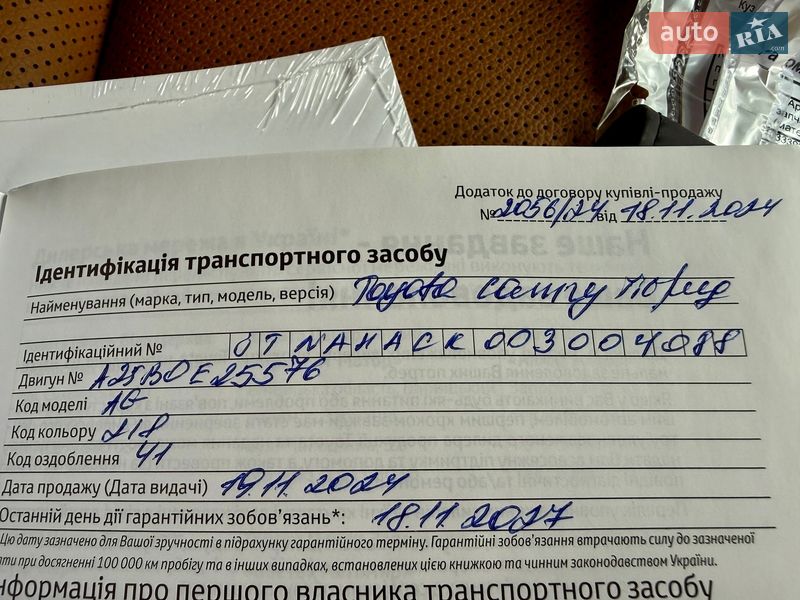 auto RIA .com
Додаток до договору купівлі-продажу
№ 2056/24 від 18.11.2024
Ідентифікація транспортного засобу
Найменування (марка, тип, модель, версія) Toyota Camry гібрид
Ідентифікаційний № JTNAHACK003004088
Двигун № A25BDE25576
Код моделі AG
Код кольору 218
Код оздоблення 41
Дата продажу (Дата видачі) 19.11.2024
Останній день дії гарантійних зобов’язань*: 18.11.2027
Цю дату зазначено для Вашої зручності в підрахунку гарантійного терміну. Гарантійні зобов’язання втрачають силу до зазначеної
при досягненні 100 000 км пробігу та в інших випадках, встановлених цією книжкою та чинним законодавством України.
нформація про першого власника транспортного засобу